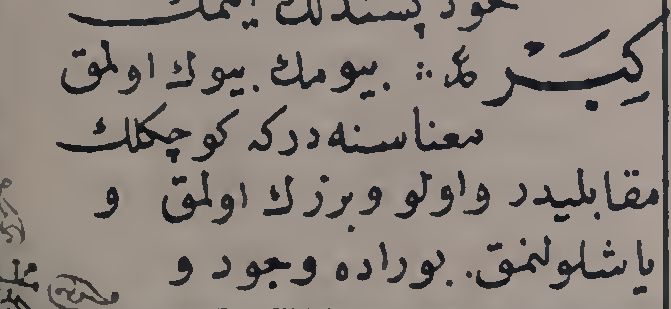 خود پسندلك ایتمك
كِبَر ع ∴ بیومك بیوك اولمق
معناسنه در كه كوچكلك
مقابلیدر و اولو و بزرك اولمق و
یاشلولنمق. بوراده وجود و